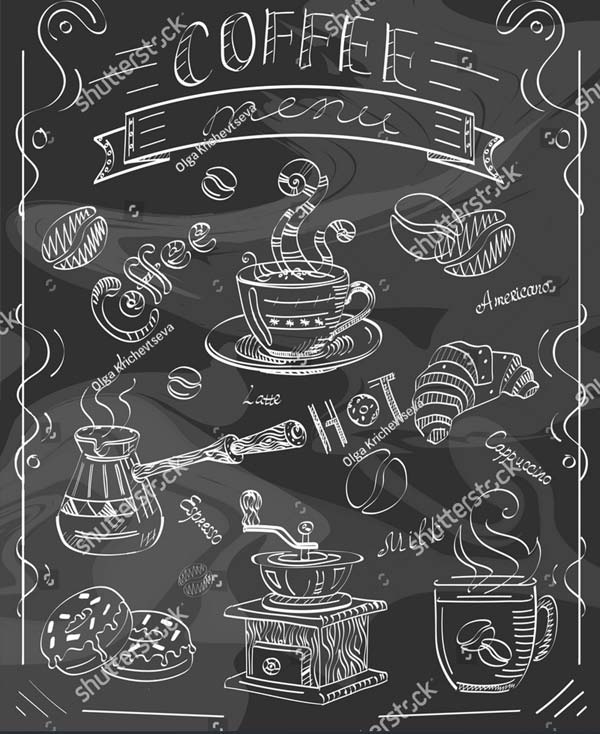 COFFEE
menu
Coffee
Americano
Latte
HOT
Cappuccino
Espresso
Milk
shutterstock
Olga Krichevtseva
shutterstock
shutterstock
Olga Krichevtseva
shutterstock
Olga Krichevtseva
shutterstock
shutterstock
shutterstock
shutterstock